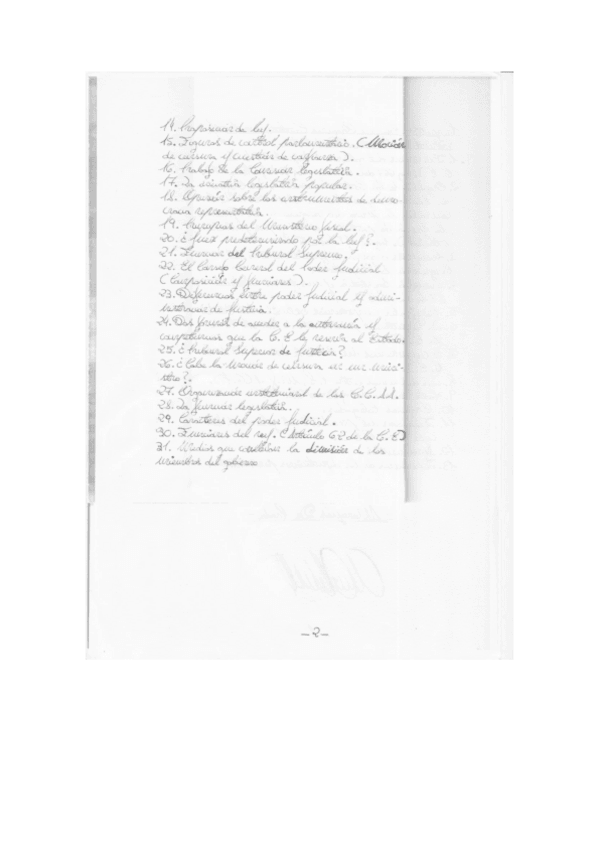 14. Proposiciones de ley.
15. Figuras de control parlamentario. (Moción
de censura y cuestión de confianza).
16. Trabajo de la Comisión legislativa.
17. La iniciativa legislativa popular.
18. Opinión sobre los instrumentos de demo-
cracia representativa.
19. Principios del Ministerio fiscal.
20. ¿Juez predeterminado por la ley?.
21. Funciones del Tribunal Supremo.
22. El Consejo General del Poder Judicial
(Composición y funciones).
23. Diferencias entre poder judicial y admini-
stración de justicia.
24. Dos formas de acceder a la autonomía y
competencias que la C.E le reserva al Estado.
25. ¿Tribunal Superior de Justicia?
26. ¿Cabe la Moción de censura a un minis-
tro?.
27. Organización institucional de las CC.AA.
28. La función legislativa.
29. Caracteres del poder judicial.
30. Funciones del rey. (Artículo 62 de la C.E)
31. Medios que conlleva la dimisión de los
miembros del gobierno
-2-